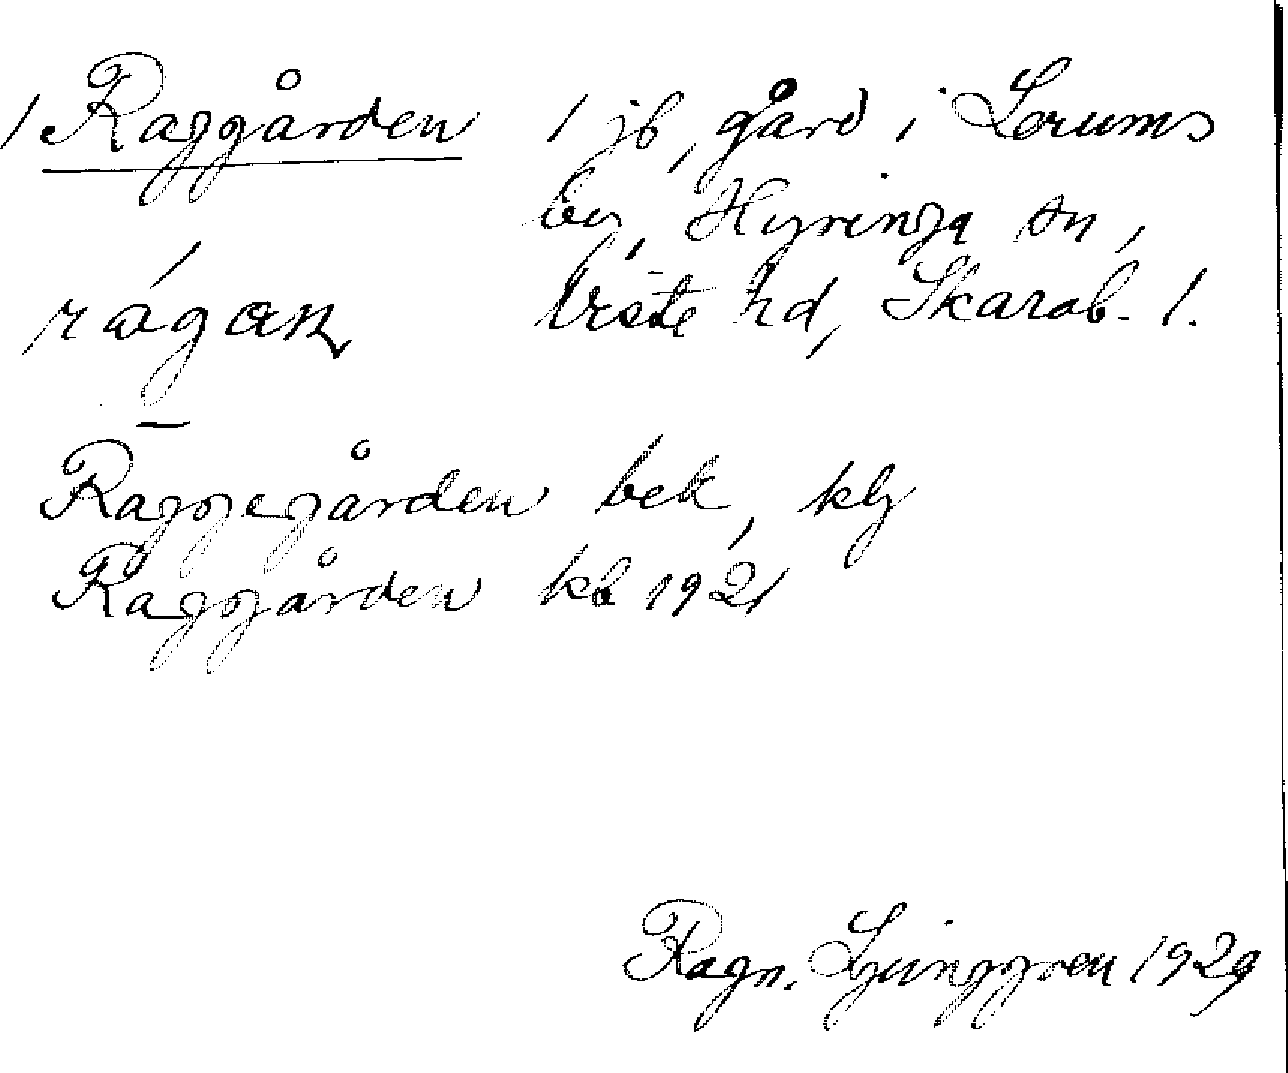 1 Raggården 1 jb, gård i Lorums
by, Hyringa sn,
rågan Viste hd, Skarab. l.
Raggegården bek, klg
Raggården kb 1921
Ragn. Ljunggren 1929